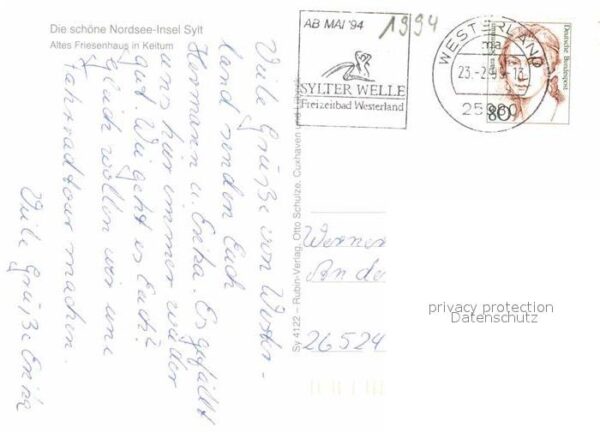 Die schöne Nordsee-Insel Sylt
Altes Friesenhaus in Keitum
AB MAI '94
SYLTER WELLE
Freizeitbad Westerland
1994
WESTERLAND
ma
23.-2.95-13
25980
Deutsche Bundespost
80
Viele Grüße von Wester-
land senden Euch
Hermann u. Erika. Es gefällt
uns hier immer wieder
gut. Wie geht es Euch?
Gleich wollen wir eine
Fahrradtour machen.
Viele Grüße Erika
Sy 4122 – Rubin-Verlag, Otto Schulze, Cuxhaven und Lübeck
Werner
An de
26524
privacy protection
Datenschutz